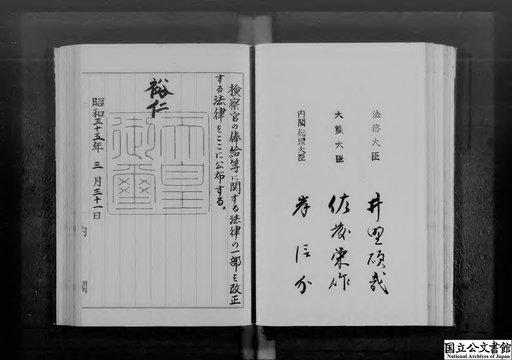 法務大臣 井野碩哉
大蔵大臣 佐藤栄作
内閣総理大臣 岸信介
検察官の俸給等に関する法律の一部を改正
する法律をここに公布する。
裕仁
天皇
御璽
昭和三十五年三月三十一日
内閣
国立公文書館
National Archives of Japan